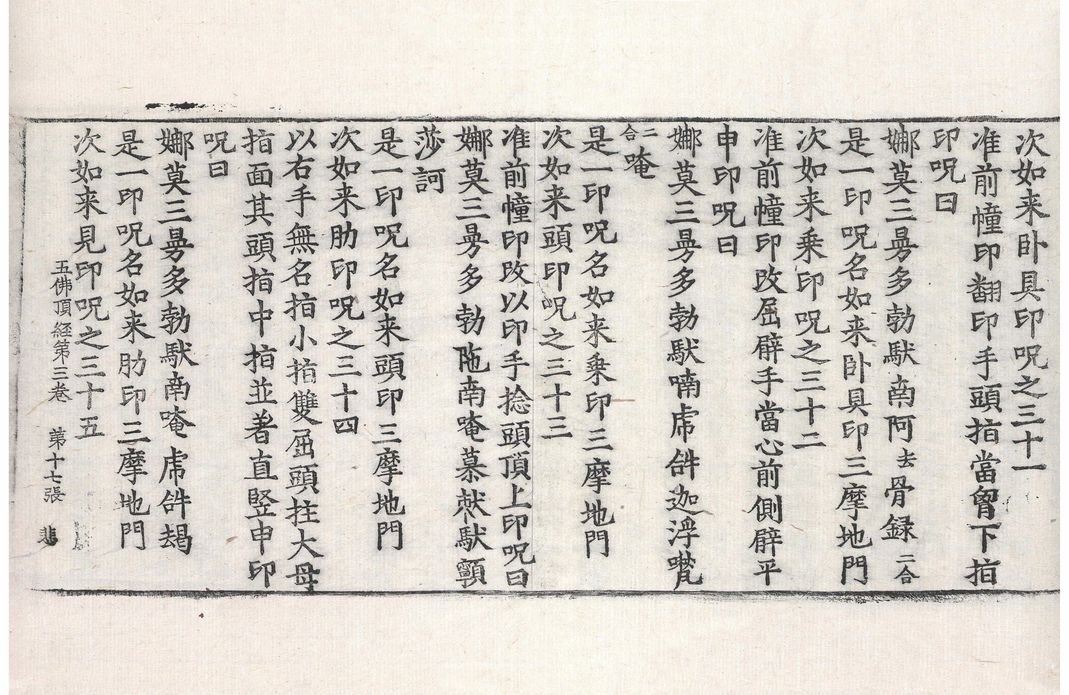 次如来卧具印呪之三十一
准前幢印翻印手頭指當胷下指
印呪曰
娜莫三曼多勃馱南阿去骨録二合
是一印呪名如来卧具印三摩地門
次如来乗印呪之三十二
准前幢印改屈臂手當心前側臂平
申印呪曰
娜莫三曼多勃馱喃虎𤙖迦浮
二合唵
是一印呪名如来乗印三摩地門
次如来頭印呪之三十三
准前幢印改以印手捻頭頂上印呪曰
娜莫三曼多勃陁南唵慕馱顎
莎訶
是一印呪名如来頭印三摩地門
次如来肋印呪之三十四
以右手無名指小指雙屈頭拄大母
指面其頭指中指並著直竪申印
呪曰
娜莫三曼多勃馱南唵虎𤙖朅
是一印呪名如来肋印三摩地門
次如来見印呪之三十五
五佛頂經第三卷 第十七張 悲